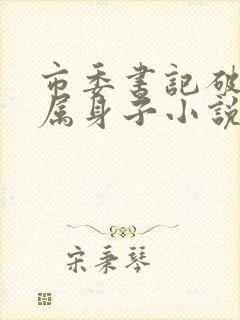 市委書記破
属身子小說
宋秉琴